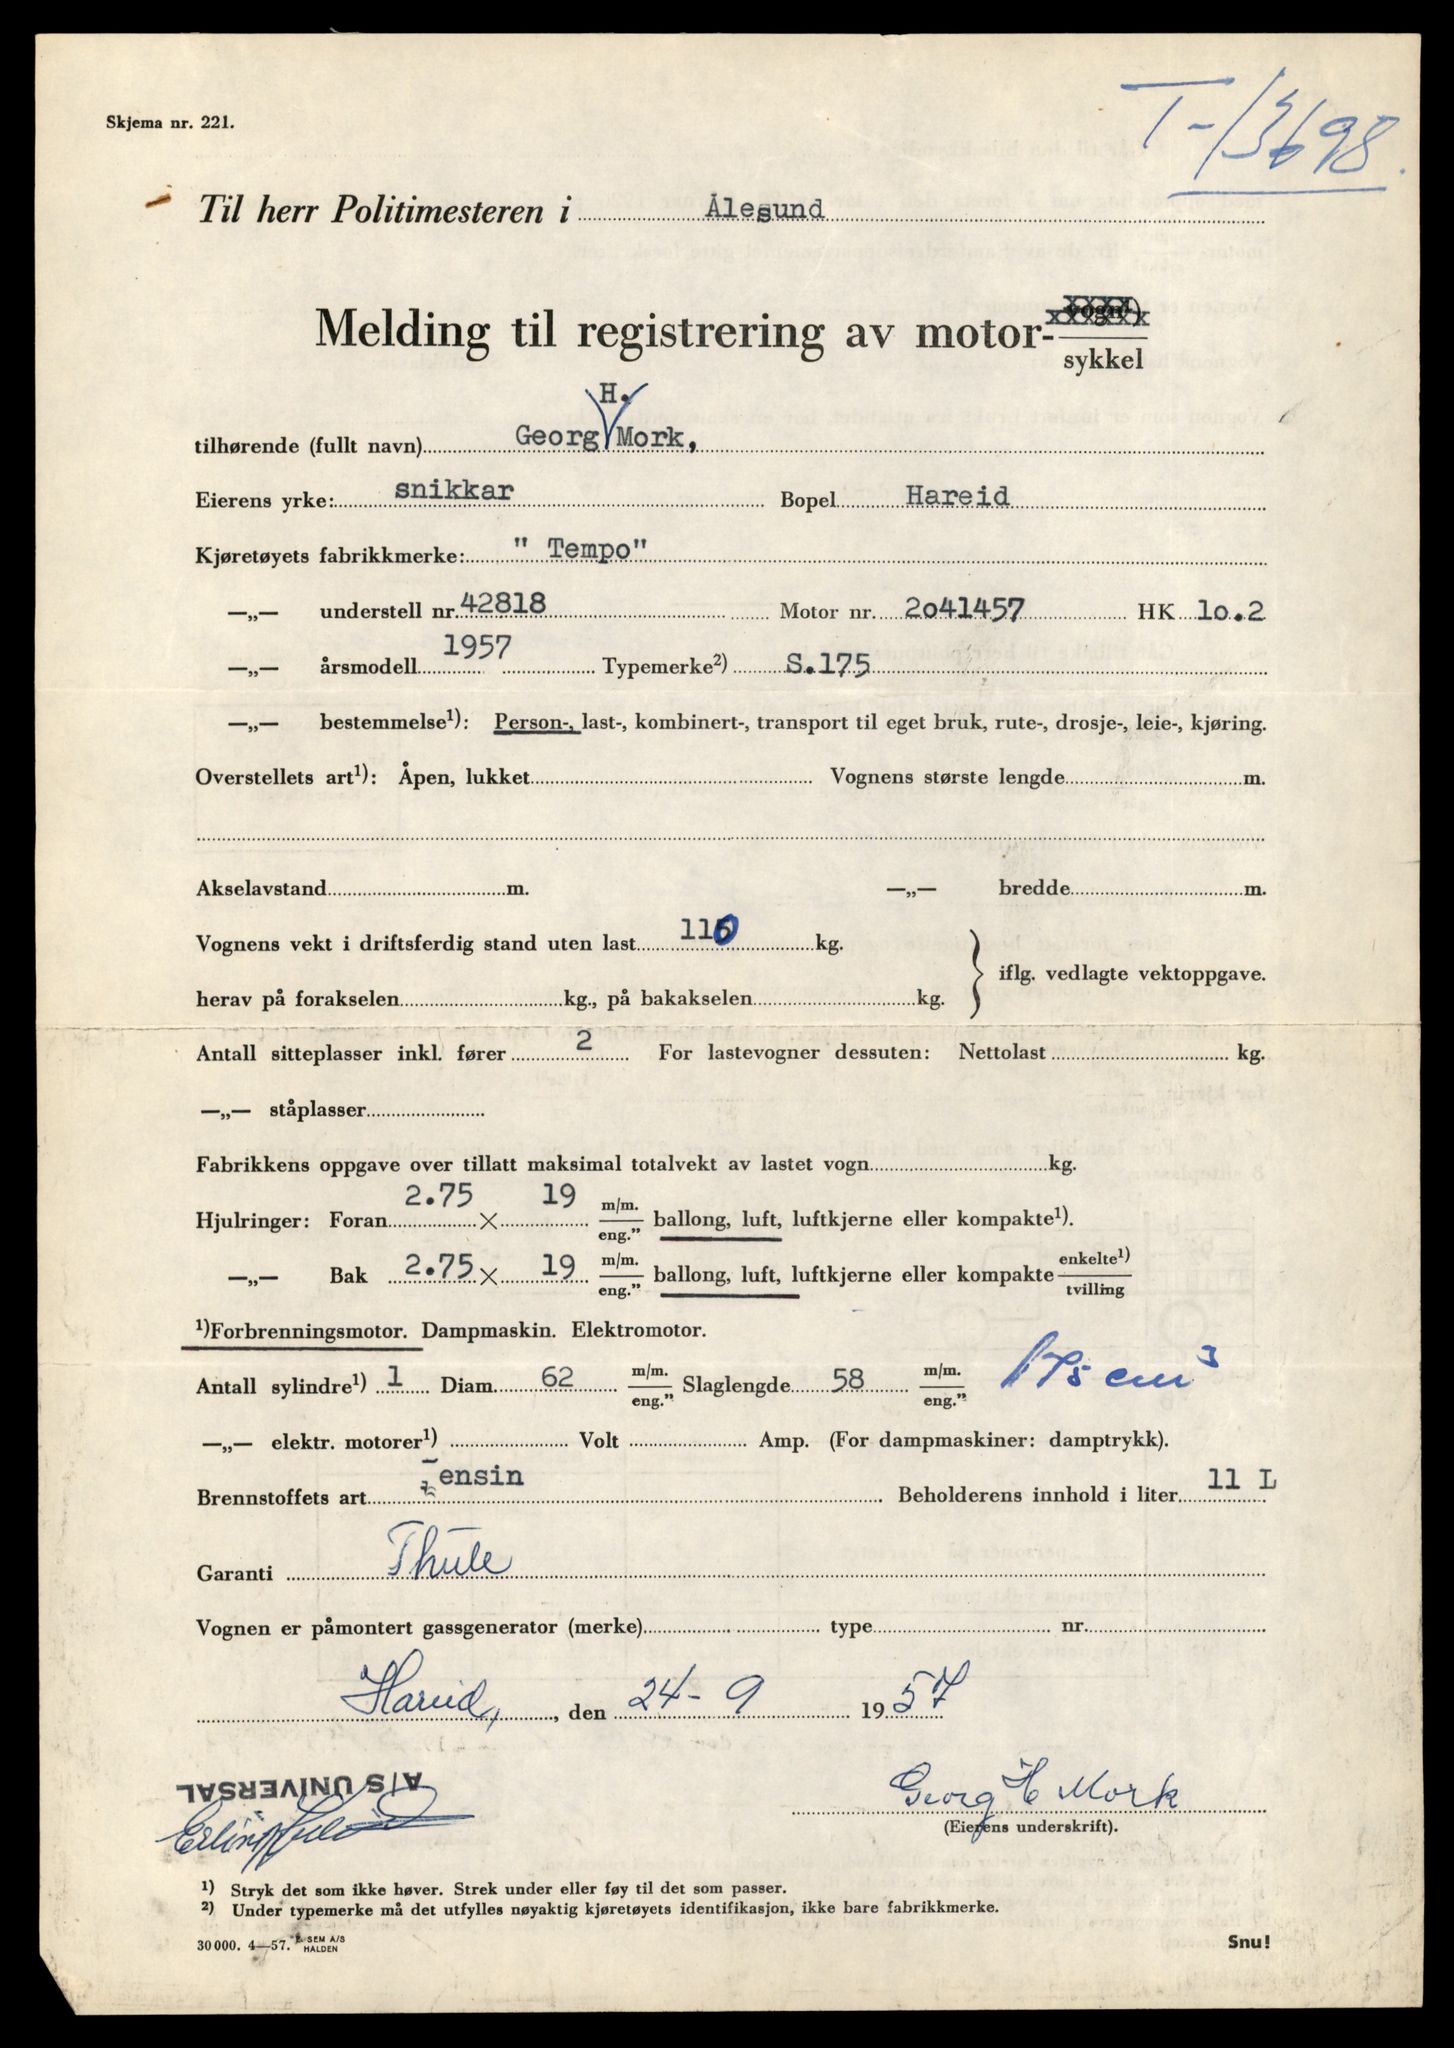 T-13698.
Skjema nr. 221.
Til herr Politimesteren i Ålesund
Melding til registrering av motor- vogn¹) sykkel
H.
tilhørende (fullt navn) Georg Mork,
Eierens yrke: snikkar Bopel Hareid
Kjøretøyets fabrikkmerke: " Tempo"
—„— understell nr. 42818 Motor nr. 2o41457 HK lo.2
—„— årsmodell 1957 Typemerke²) S.175
—„— bestemmelse¹): Person-, last-, kombinert-, transport til eget bruk, rute-, drosje-, leie-, kjøring.
Overstellets art¹): Åpen, lukket Vognens største lengde m.
Akselavstand m. —„— bredde m.
Vognens vekt i driftsferdig stand uten last 110 kg.
iflg. vedlagte vektoppgave.
herav på forakselen kg., på bakakselen kg.
Antall sitteplasser inkl. fører 2 For lastevogner dessuten: Nettolast kg.
—„— ståplasser
Fabrikkens oppgave over tillatt maksimal totalvekt av lastet vogn kg.
Hjulringer: Foran 2.75 × 19 m/m. eng." ballong, luft, luftkjerne eller kompakte¹).
—„— Bak 2.75 × 19 m/m. eng." ballong, luft, luftkjerne eller kompakte enkelte¹) tvilling
¹)Forbrenningsmotor. Dampmaskin. Elektromotor.
Antall sylindre¹) 1 Diam. 62 m/m. eng." Slaglengde 58 m/m. eng." 175 cm³
—„— elektr. motorer¹) Volt Amp. (For dampmaskiner: damptrykk).
Brennstoffets art ensin Beholderens innhold i liter 11 L
Garanti Thule
Vognen er påmontert gassgenerator (merke) type nr.
Hareid, , den 24-9 1957
A/S UNIVERSAL
Georg H Mork
(Eierens underskrift).
¹) Stryk det som ikke høver. Strek under eller føy til det som passer.
²) Under typemerke må det utfylles nøyaktig kjøretøyets identifikasjon, ikke bare fabrikkmerke.
30 000. 4—57. E. SEM A/S HALDEN Snu!